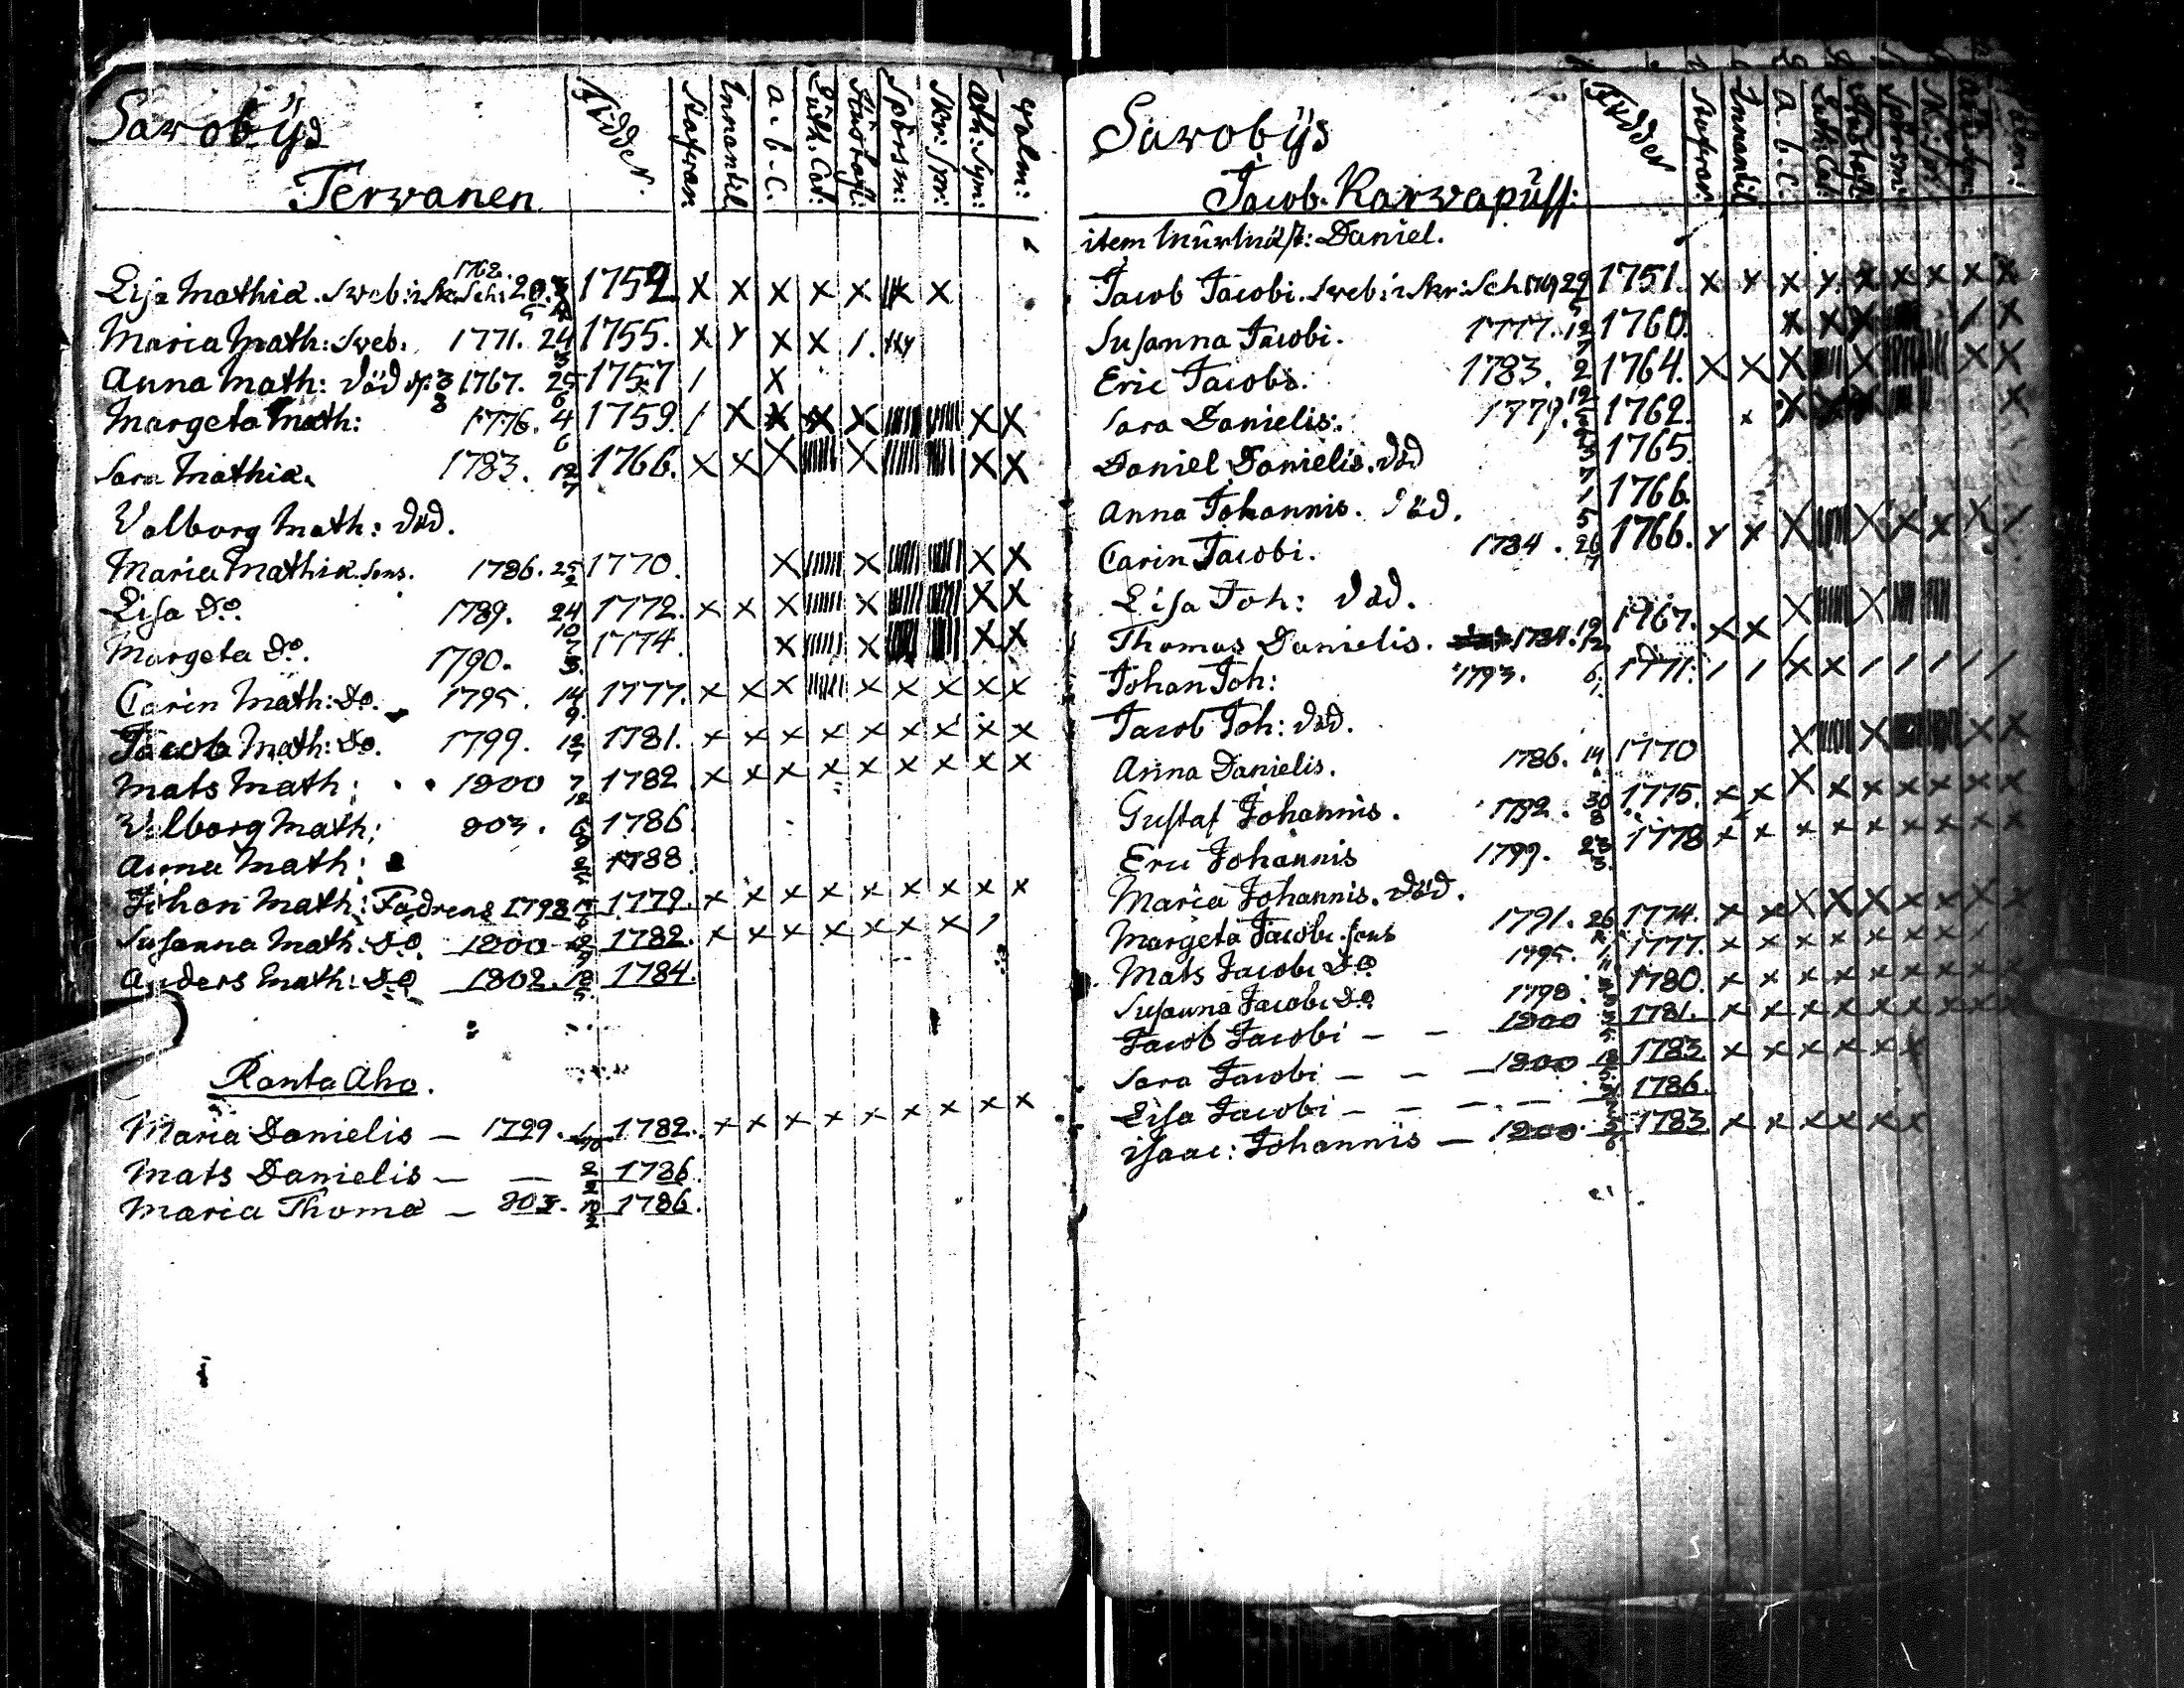 Sarobÿs
Tervanen
Födder.
Stafvan:
Innantil
a. b. C.
Luth: Cat:
Hustafl:
Spörsm:
Skr: Spr:
Ath: Sym:
psalm:
1762.
Lisa Mathiæ. Sveb: i Skr: Sch: 20. 1752 X X X X X X X
Maria Math: Sveb. 1771. 24/3 1755. X Y X X 1.
Anna Math: död 1767. 25/6 1757 / X
Margeta Math: 1776. 4/6 1759. / X X X X X X
Sara Mathiæ. 1783. 12/7 1766. X X X X X X
Valborg Math: död.
Maria Mathiæ. sons. 1786. 25/2 1770. X X X X
Lisa Do. 1789. 24/10 1772. X X X X X X
Margeta Do. 1790. 1774. X X X X
Carin Math: Do. 1795. 14/9 1777. X X X X X X X X
Jacob Math: Do. 1799. 12/7 1781. X X X X X X X X X
Mats Math: 1800 7/12 1782 X X X X X X X X X
Valborg Math: 803. 6/9 1786.
Anna Math: 1788.
Johan Math: Fadrens 1798 1779. X X X X X X X X X
Susanna Math: Do. 1800 1782. X X X X X X X /
Anders Math: Do 1802. 1784.
Ranta Aho.
Maria Danielis — 1799. 1/10 1782. X X X X X X X X X
Mats Danielis — — 1786.
Maria Thomæ — 803. 1786.
Sarobÿs
Jacob. Karvapuss:
Födder
Stafvan:
Innantil
a. b. C:
Luth: Cat:
Hustafl:
Spörsm:
item Daniel.
Jacob Jacobi. Sveb: i Skr: Sch 1769 29 1751. X Y X Y X X X X X
Susanna Jacobi. 1777. 12 1760. X X X / X
Eric Jacobi. 1783. 2 1764. X X X X X X
Sara Danielis: 1779. 1762. X X X X X
Daniel Danielis. död 1765.
Anna Johannis. död. 1766.
Carin Jacobi. 1784. 26/7 1766. Y X X X X X X /
Lisa Joh: död.
Thomas Danielis. 1784. 19/12 1767. X X X X
Johan Joh: 1793. 6/1 1771. / / X X / / / / /
Jacob Joh: död.
Anna Danielis. 1786. 14 1770 X X X X
Gustaf Johannis. 1792. 30/8 1775. X X X X X X X X X
Eric Johannis 1799. 23/3 1778 X X X X X X X X X
Maria Johannis. död.
Margeta Jacobi. sons 1791. 26 1774. X X X X X X X X X
Mats Jacobi Do 1795. 1777. X X X X X X X X /
Susanna Jacobi Do 1798. 1780. X X X X X X X X X
Jacob Jacobi — — 1800 1781. X X X X X X X X X
Sara Jacobi — — — 1800 1783. X X X X X X
Lisa Jacobi — — — — 1786.
Isaac: Johannis — 1800 5/6 1783 X X X X X X